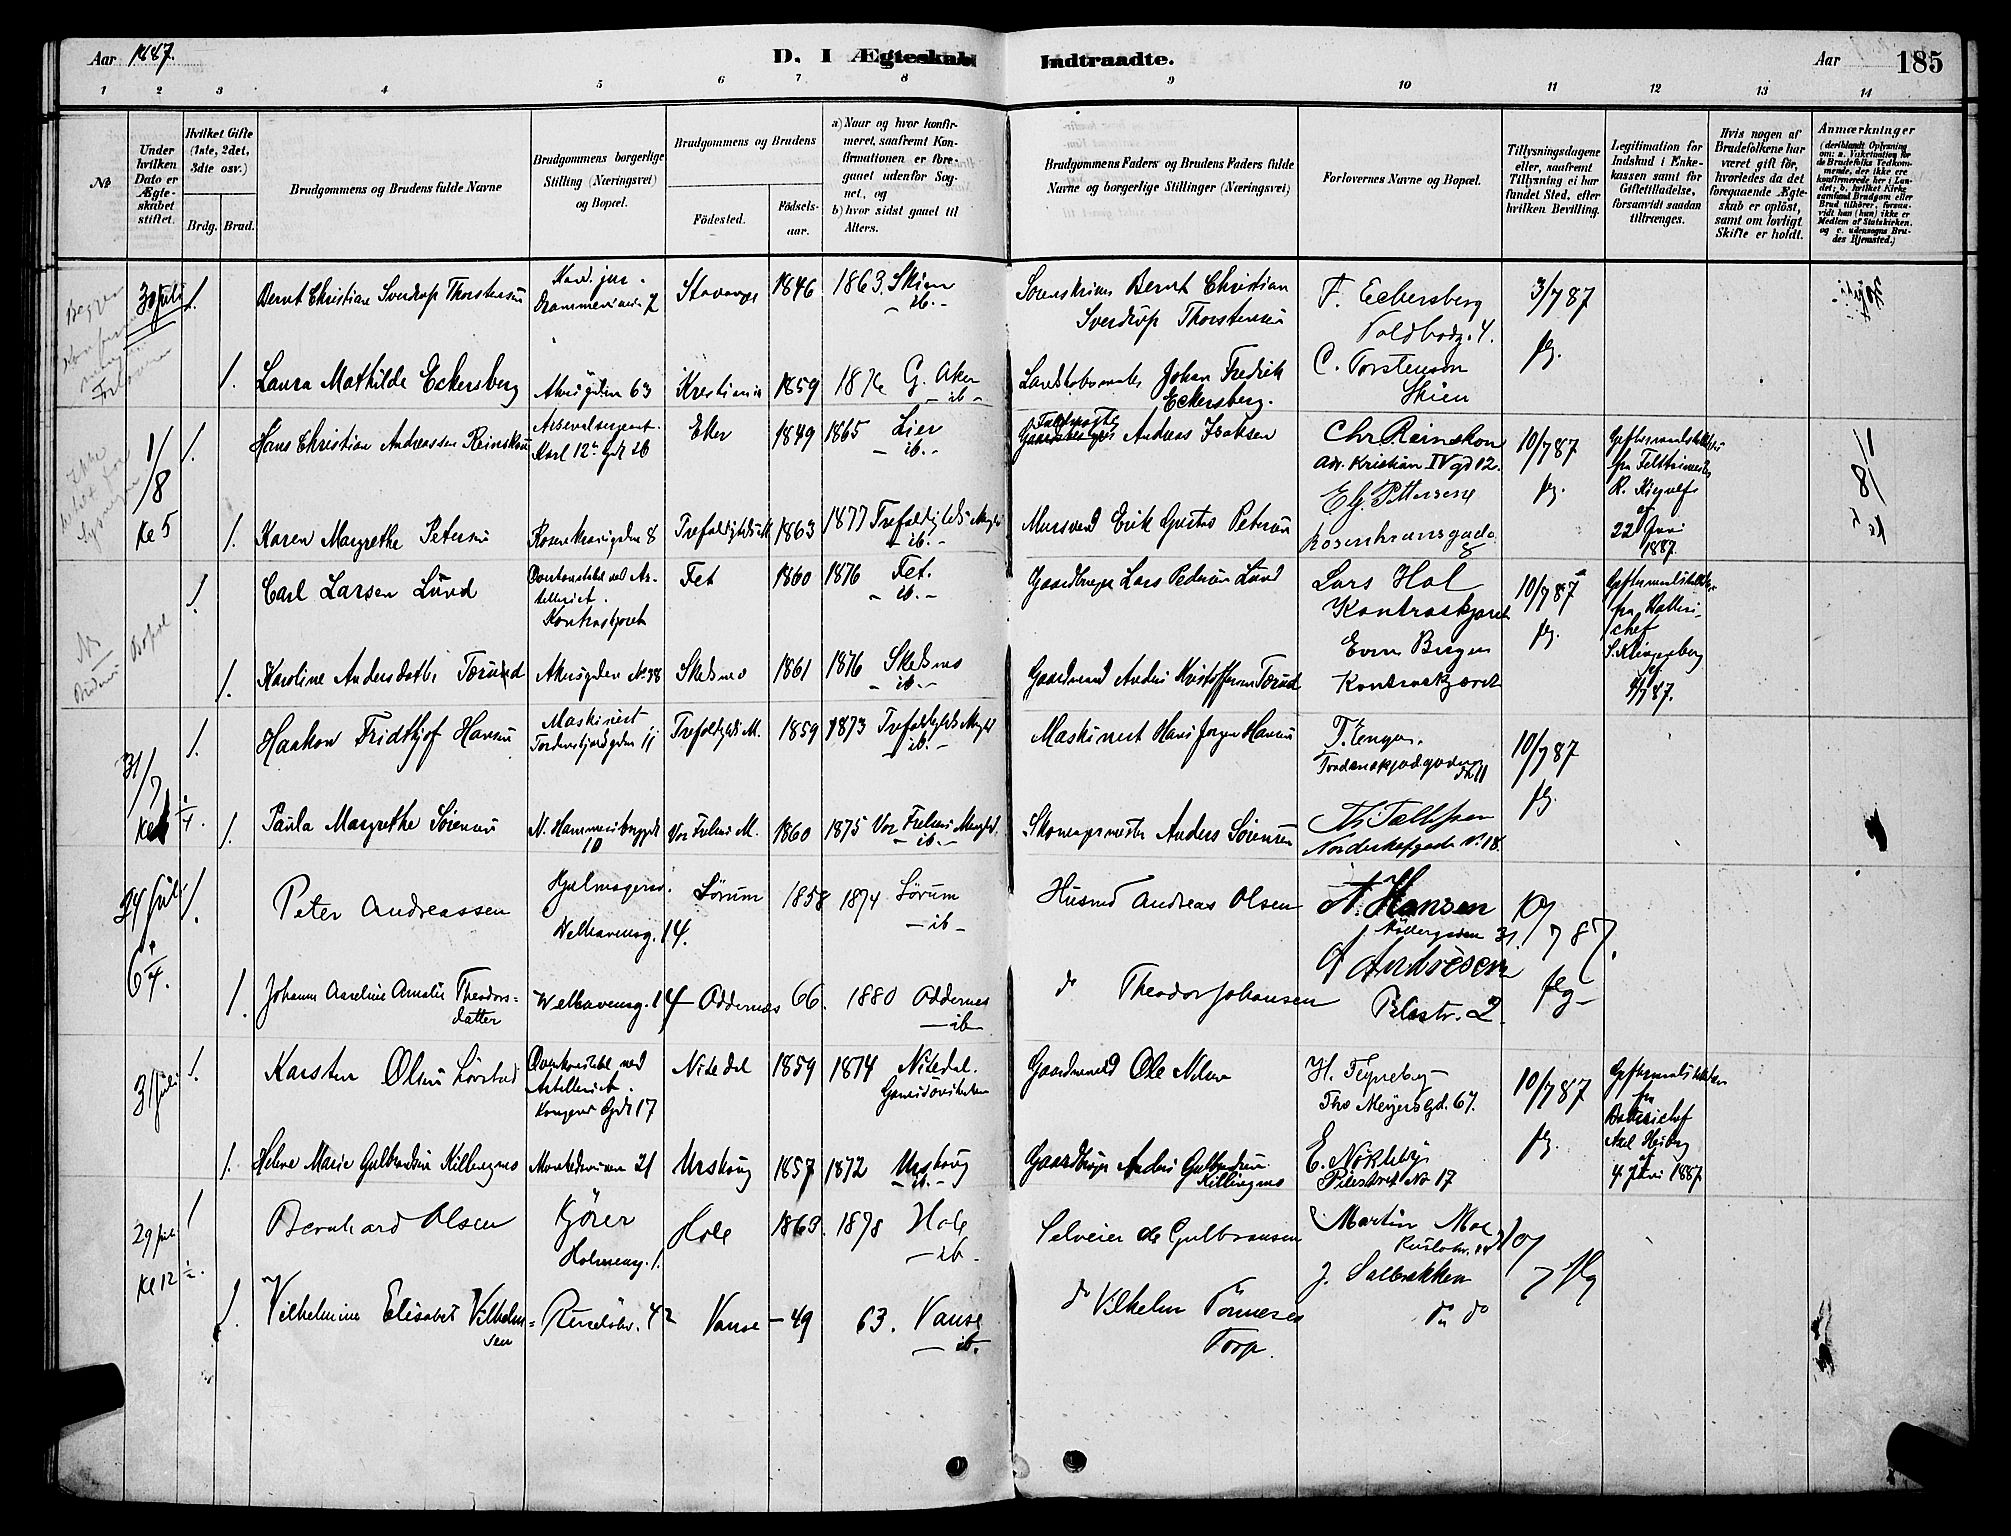 Aar 1887.
D. I Ægteskab Indtraadte.
Aar
185
1 2 3 4 5 6 7 8 9 10 11 12 13 14
No
Under hvilken Dato er Ægteskabet stiftet.
Hvilket Gifte (1ste, 2det, 3die osv.)
Brdg. Brud.
Brudgommens og Brudens fulde Navne
Brudgommens borgerlige Stilling (Næringsvei) og Bopæl.
Brudgommens og Brudens
Fødested.
Fødsels-aar.
a) Naar og hvor konfirmeret, saafremt Konfirmationen er foregaaet udenfor Sognet, og
b) hvor sidst gaaet til Alters.
Brudgommens Faders og Brudens Faders fulde Navne og borgerlige Stillinger (Næringsvei)
Forlovernes Navne og Bopæl.
Tillysningsdagene eller, saafremt Tillysning ei har fundet Sted, efter hvilken Bevilling.
Legitimation for Indskud i Enkekassen samt for Giftetilladelse, forsaavidt saadan tiltrænges.
Hvis nogen af Brudefolkene har været gift før, hvorledes da det foregaaende Ægteskab er opløst, samt om lovligt Skifte er holdt.
Anmærkninger
(deriblandt Oplysning om: a. Vaksination for de Brudefolks Vedkommende, der ikke ere konfirmerede her i Landet; b. hvilket Kirkesamfund Brudgom eller Brud tilhører, forsaavidt han (hun) ikke er Medlem af Statskirken. og c. udensogns Brudes Hjemsted.)
30 Juli 1. Bernt Christian Sverdrup Thorstensen
Kand. jur.
Drammensveien 7
Stavanger 1846 1863. Skien
- ib. -
Sorenskriver Bernt Christian
Sverdrup Thorstensen
F. Eckersberg
Toldbodg. 4.
3/7 87
1. Laura Mathilde Eckersberg Akersgaden 63 Kristiania 1859 1876 G. Aker
- ib -
Landskabsmaler Johan Fredrik
Eckersberg.
C. Torstenson
Skien
1/8
Ke 5
1. Hans Christian Andreassen Reinskou
Arsenalsergent.
Karl 12te Gd 26
Eker 1849 1865 Lier
- ib. -
Andreas Isaksen
Chr Reinskou
Adr. Kristian IV gd 12.
10/7 87
fra
R.
22 Juni
1887.
1/8
Ke 5
1. Karen Margrethe Petersen Rosenkransgaden 8 Trefoldigheds M. 1863 1877 Trefoldigheds Mgh
- ib. -
Mursvend Erik Gustav Petersen
E. G. Pettersen
Rosenkransgade
8
1. Carl Larsen Lund
Overkonstabel ved Artilleriet.
Kontraskjæret
Fet 1860 1876 Fet.
- ib. -
Gaardbruger Lars Pedersen Lund
Lars Hol
Kontraskjæret
10/7 87
fra Batterichef
S. Klingenberg
1. Karoline Andersdatter Torund Akersgaden No 38 Skedsmo 1861 1876 Skedsmo
- ib. -
Gaardmand Anders Kristoffersen Torud
Even Bergen
Kontraskjæret
31/7
1. Haakon Fridthjof Hansen
Maskinist
Tordenskjoldsgaden 11
Trefoldigheds M. 1859 1873 Trefoldigheds Mgh
- ib. -
Maskinist Hans Jørgen Hansen
T. Engen.
Tordenskjoldgaden
No 11
10/7 87
1. Paula Margrethe Sørensen
N. Hammersborggd
10
Vor Frelsers M. 1860 1875 Vor Frelsers Mengh.
- ib. -
Skomagermester Anders Sørensen
Norderhofgade No 18.
24 Juli
6 1/4.
1. Peter Andreassen
Hjulmagersv.
Welhavensg. 14.
Sørum 1858 1874 Sørum
- ib -
Husmd Andreas Olsen
A. Hansen
Møllergaden 31.
10/7 87.
1. Johanne Aaseline Amalie Theodorsdatter
Welhavensg. 14 Oddernes 66. 1880 Oddernes
- ib -
do Theodor Johansen
A Andresen
Pilestr. 2.
31 Juli
1. Karsten Olsen Lørstad
Overkonstabel ved
Artilleriet.
Kongens Gd 17
Nitedal 1859 1874 Nitedal.
Garnisonskirken
Gaardmand Ole Nilsen
Ths Meyers Gd. 67.
10/7 87
fra
Batterichef
Axel Heiberg
4 Juni 1887.
1. Helene Marie Gulbrandsen Killingmo Munkedamsveien 21 Urskoug 1857 1872 Urskoug
- ib. -
Gaardbruger Anders Gulbrandsen
Killingmo
E. Nøkleby
Pilestræt No 17
29 Juli
Kl 12 1/2.
1 Bernhard Olsen
Kjører
Holmensg. 1.
Hole 1863. 1878 Hole
- ib -
Selveier Ole Gulbransen
Martin Moe
10/7
1. Vilhelmine Elisabet Vilhelmsen
Ruseløkv. 42 Vanse - 49 63. Vanse
- ib. -
do Vilhelm Tønnesen
Torp.
J. Solbrækken
do do